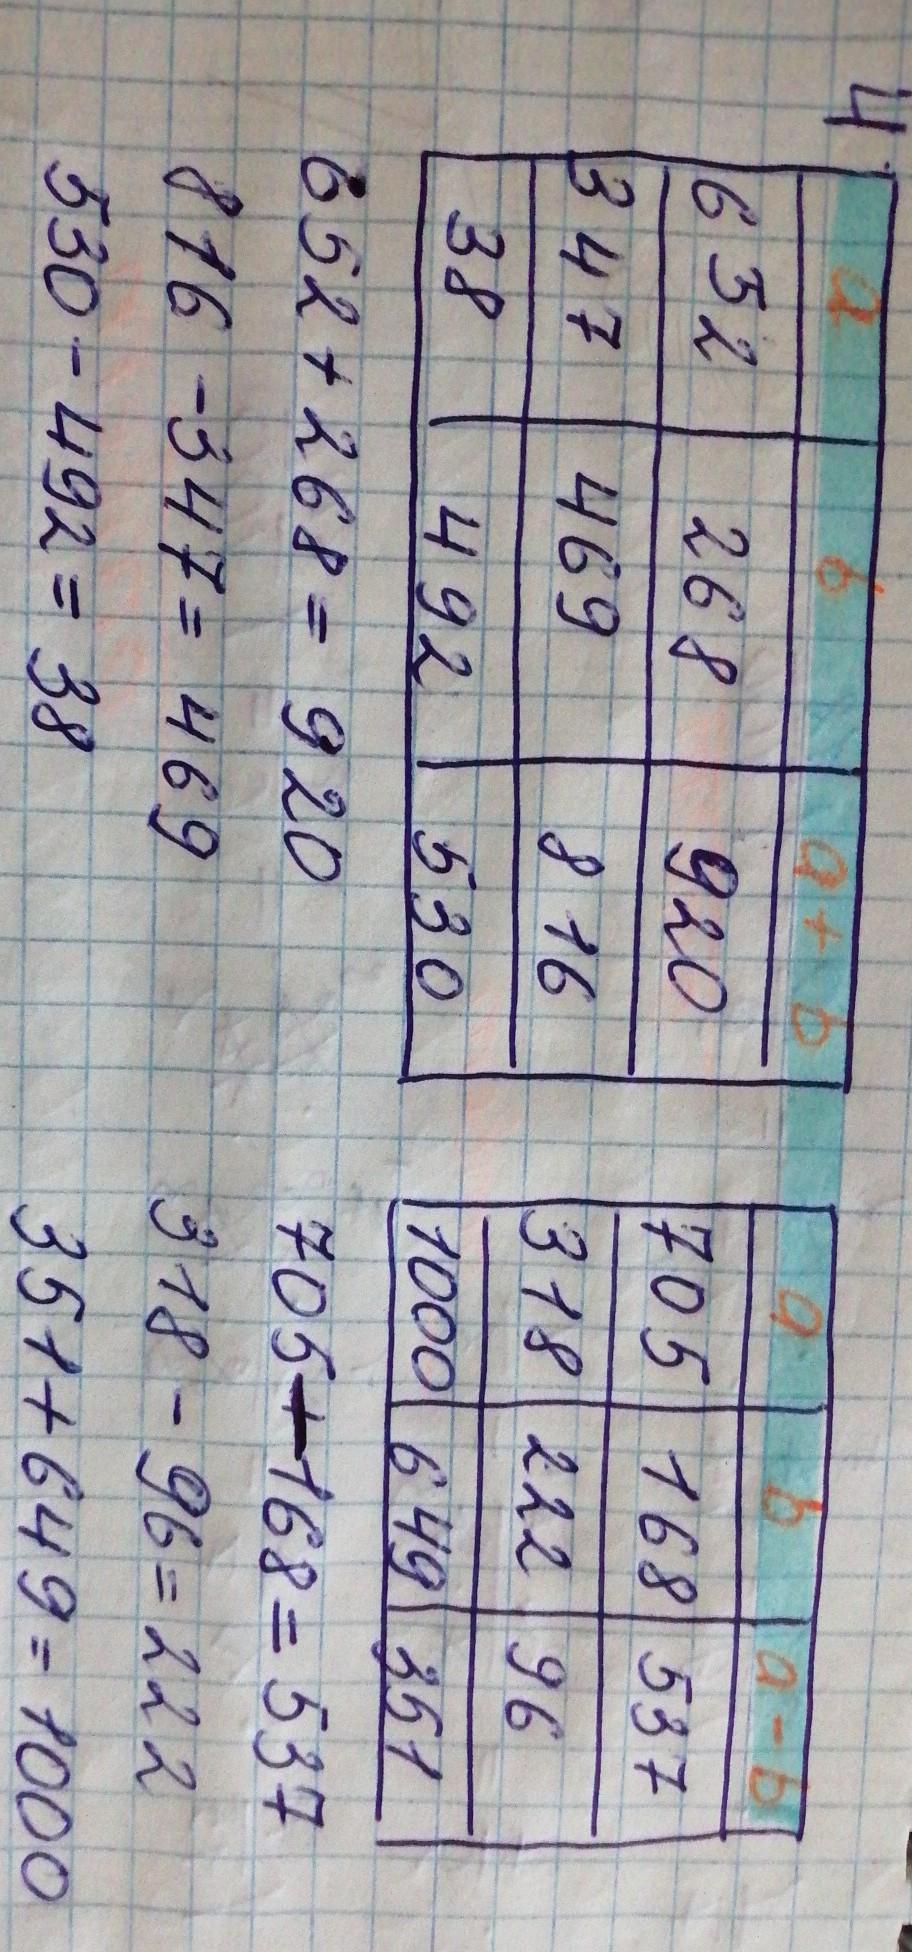 4.
a b a+b a b a-b
652 268 920 705 168 537
347 469 816 318 222 96
38 492 530 1000 649 351
652+268=920 705-168=537
816-347=469 318-96=222
530-492=38 351+649=1000